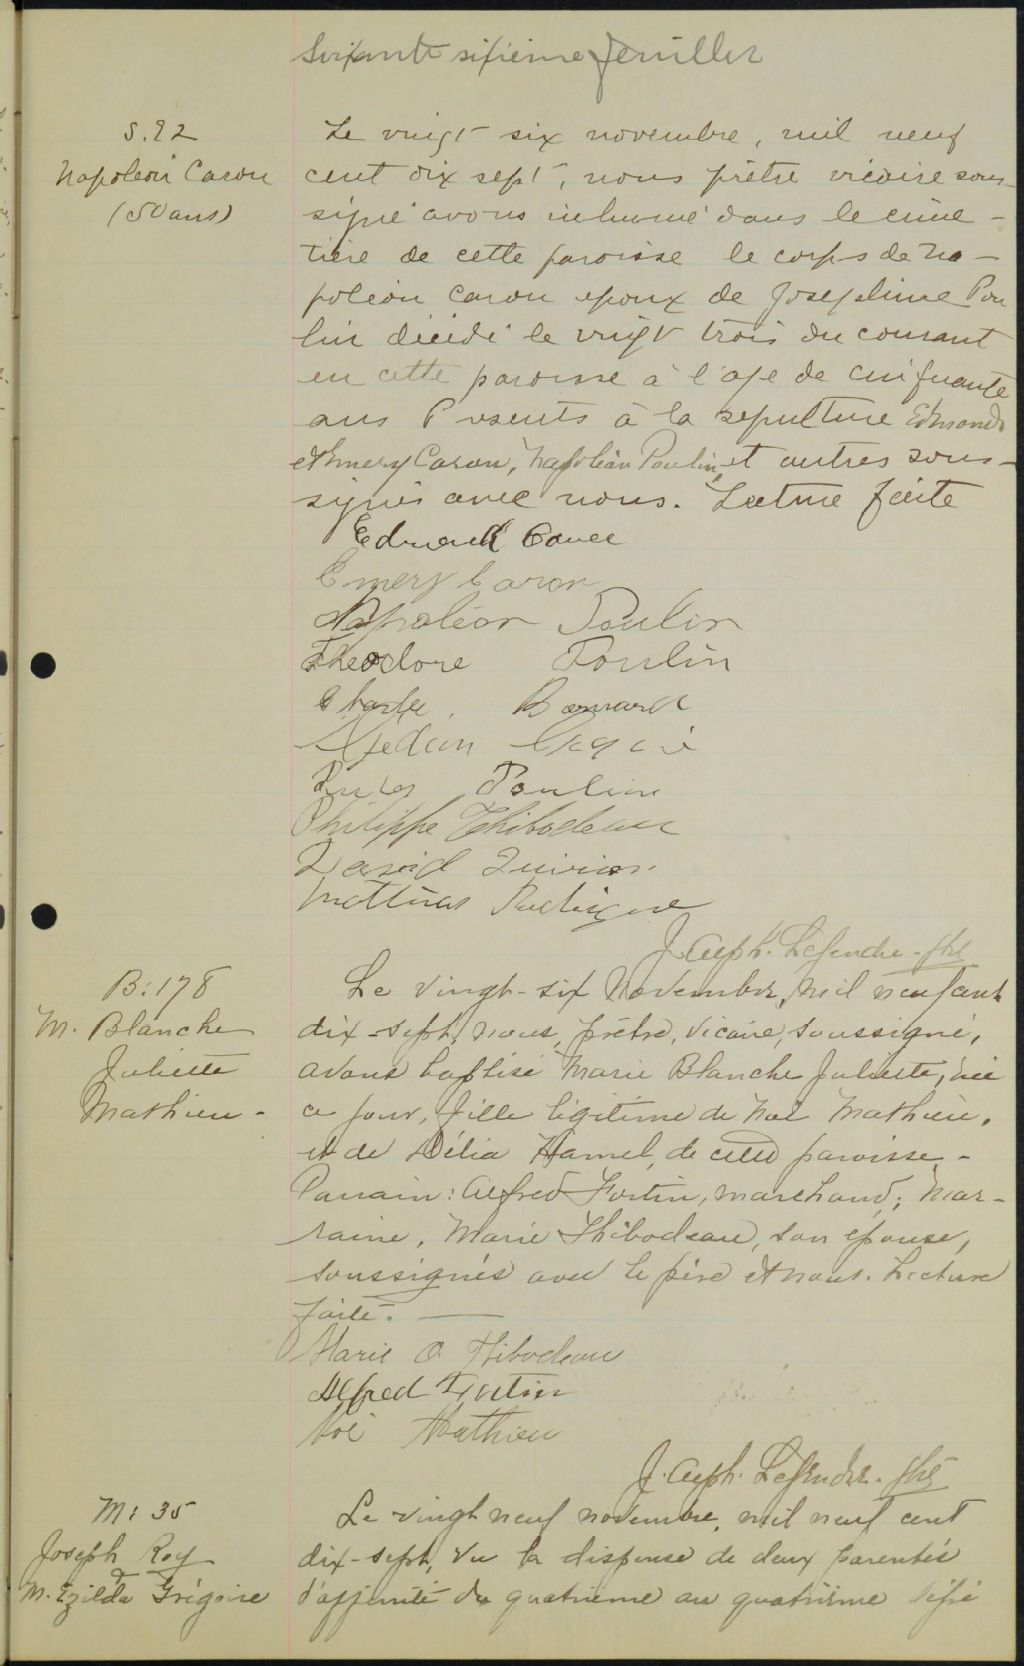 Soixante sixième feuillet
S. 92
Napoléon Caron
(50 ans)
Le vingt six novembre, mil neuf
cent dix sept, nous prêtre vicaire sous-
signé avons inhumé dans le cime-
tière de cette paroisse le corps de Na-
poléon Caron epoux de Josephine Pou
lin décédé le vingt trois du courant
en cette paroisse à l'age de cinquante
ans Présents à la sepulture Edmond
et Emery Caron, Napoléon Poulin et autres sous-
signés avec nous. Lecture faite
Caron
Emery Caron
Napoléon Poulin
Theodore Poulin
Gédéon
Poulin
Philippe Thibodeau
David Quirion
Mathias Rodrigue
J. Alph. Légendre. ptre
B: 178
M. Blanche
Juliette
Mathieu -
Le vingt-six Novembre, mil neuf cent
dix-sept, nous, prêtre, vicaire, soussigné,
avons baptisé Marie Blanche Juliette, née
ce jour, fille légitime de Noé Mathieu,
et de Délia Hamel, de cette paroisse. -
Parrain: Alfred Fortin, marchand; Mar-
raine, Marie Thibodeau, son épouse,
soussignés avec le père et nous. Lecture
faite. —
Marie O. Thibodeau
Alfred Fortin
Noé Mathieu
J. Alph. Légendre. ptre
M: 35
Joseph Roy
&
M. Ezilda Grégoire
Le vingt neuf novembre, mil neuf cent
dix-sept, Vu la dispense de deux parentés
d'affinité du quatrième au quatrième dégré